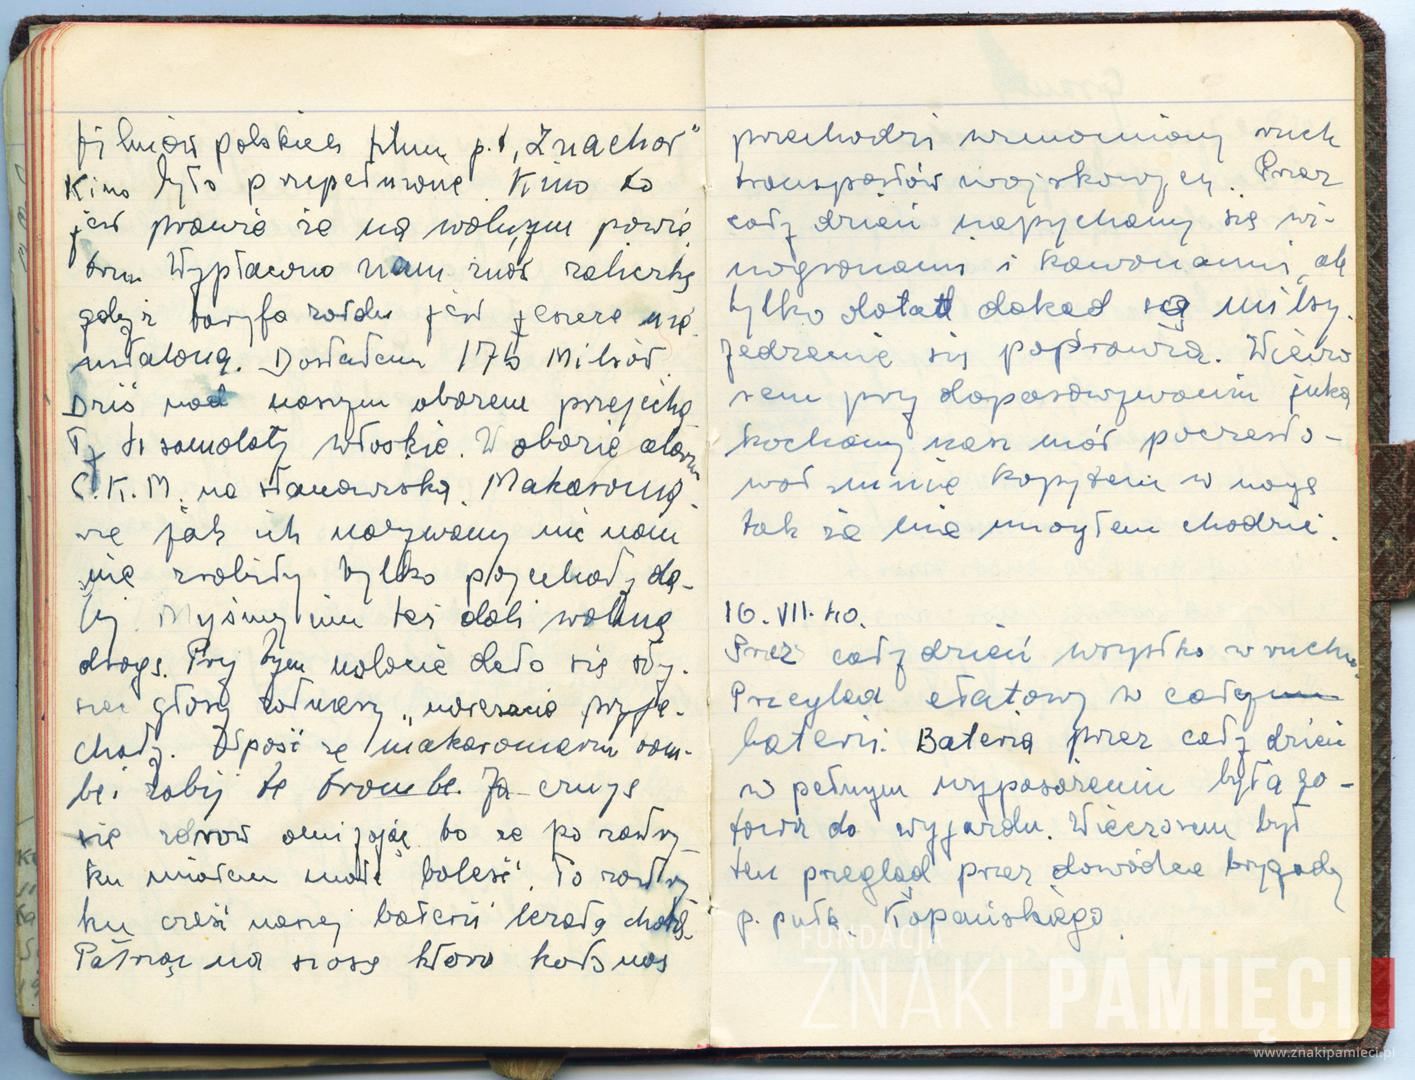 filmów polskich film p.t „Znachor"
Kino było przepełnione. Kino to
jest prawie że na wolnym powie
trzu. Wypłacono nam znów zaliczkę
gdyż taryfa żołdu jest jeszcze nie
ustaloną. Dostałem 175 Milsów.
Dziś nad naszym obozem przejecha
ły samoloty włoskie. W obozie alarm
C.K.M. na stanowiska. Makarona
rze jak ich nazywamy nic nam
nie zrobiły tylko pojechały da-
lej. Myśmy im też dali wolną
drogę. Przy tym nalocie dało się sły-
szeć głosy żołnierzy „nareszcie przyje-
chały. Opuść se makaroniarzu bom-
bę i zabij tę trombę. Ja czuję
się zdrowo ale po zastrzy-
ku miałem małe boleść. Po zastrzy
ku cześć naszej baterii leżała chora.
Patrząc na szosę która koło nas
przechodzi wzmocniony ruch
transportów wojskowych. Przez
cały dzień napychamy się wi-
nogronami i kawonami, ale
tylko dotąd dokąd są milsy.
Jedzenie się poprawia. Wieczo
rem przy dopasowywaniu juka
kochany nasz muł poczęsto-
wał mnie kopytem w nogę
tak że nie mogłem chodzić.
16.VII.40.
Przez cały dzień wszystko w ruchu.
Przegląd etatowy w całym
baterii. Bateria przez cały dzień
w pełnym wyposażeniu była go-
towa do wyjazdu. Wieczorem był
ten przegląd przez dowódcę brygady
p. pułk. Kopańskiego.
FUNDACJA
ZNAKI PAMIĘCI
www.znakipamieci.pl